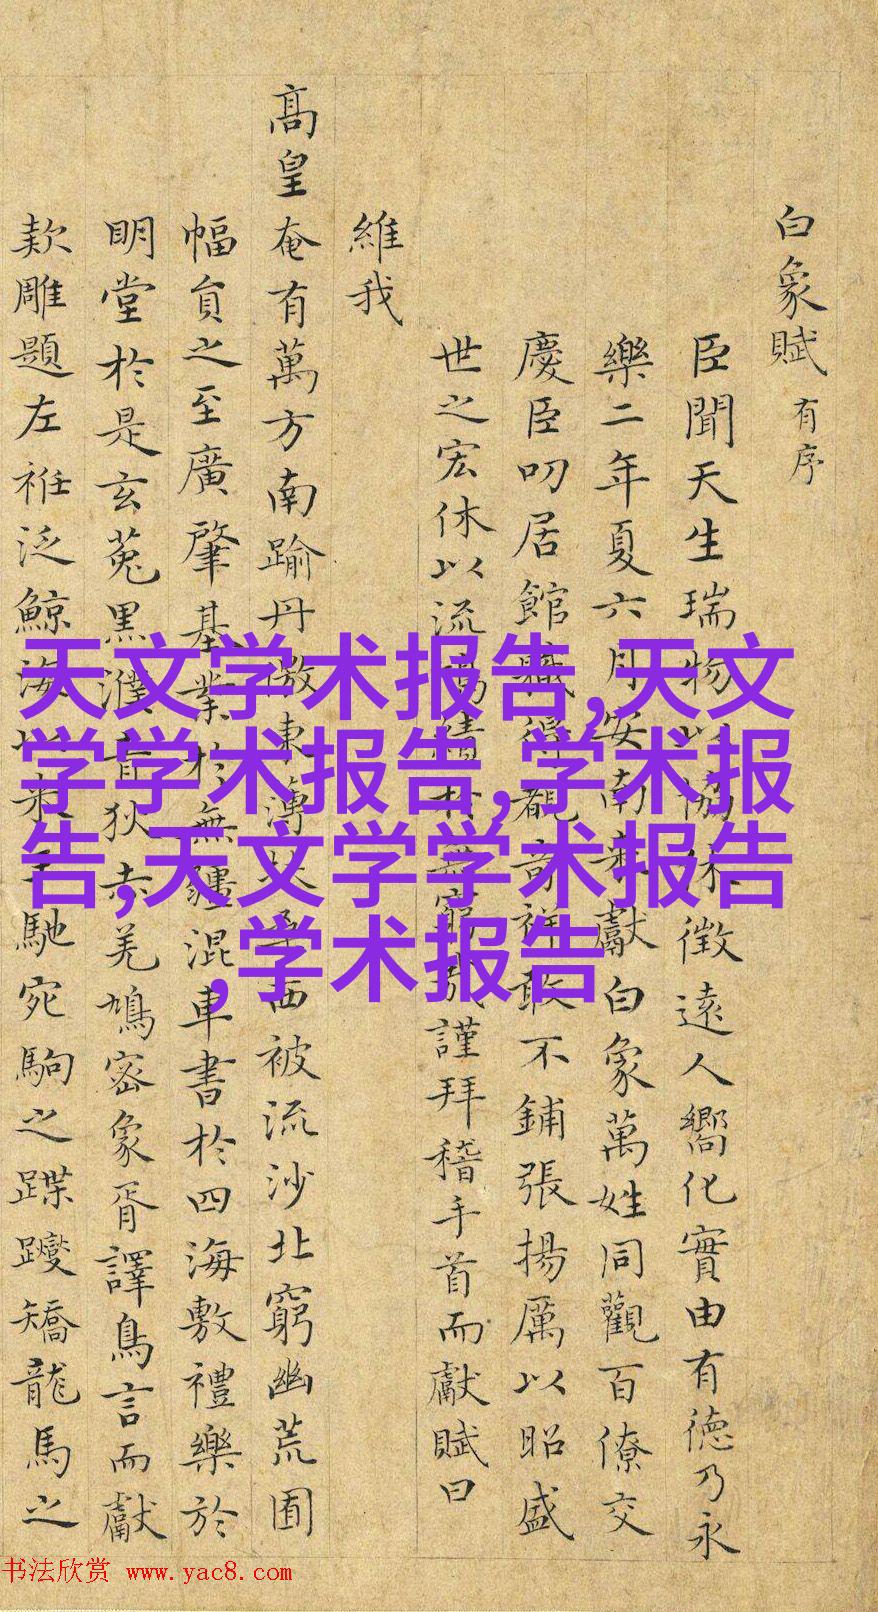 白象賦 有序
臣聞天生瑞物以協休徵遠人嚮化實由有德乃永
樂二年夏六月安南來獻白象萬姓同觀百僚交
慶臣叨居館職得覩奇祥敢不鋪張揚厲以昭盛
世之宏休以流績於無窮哉謹拜稽手首而獻賦曰
維我
高皇奄有萬方南踰丹徼東薄扶桑西被流沙北窮幽荒囿
幅員之至廣肇基業於無疆混車書於四海敷禮樂於
明堂於是玄菟黑濮青狄赤羌鳩密象胥譯鳥言而獻
款雕題左衽泛鯨海以來王馳宛駒之蹀躞矯龍馬之
天文学术报告,天文
学学术报告,学术报
告,天文学学术报告
,学术报告
书法欣赏 www.yac8.com